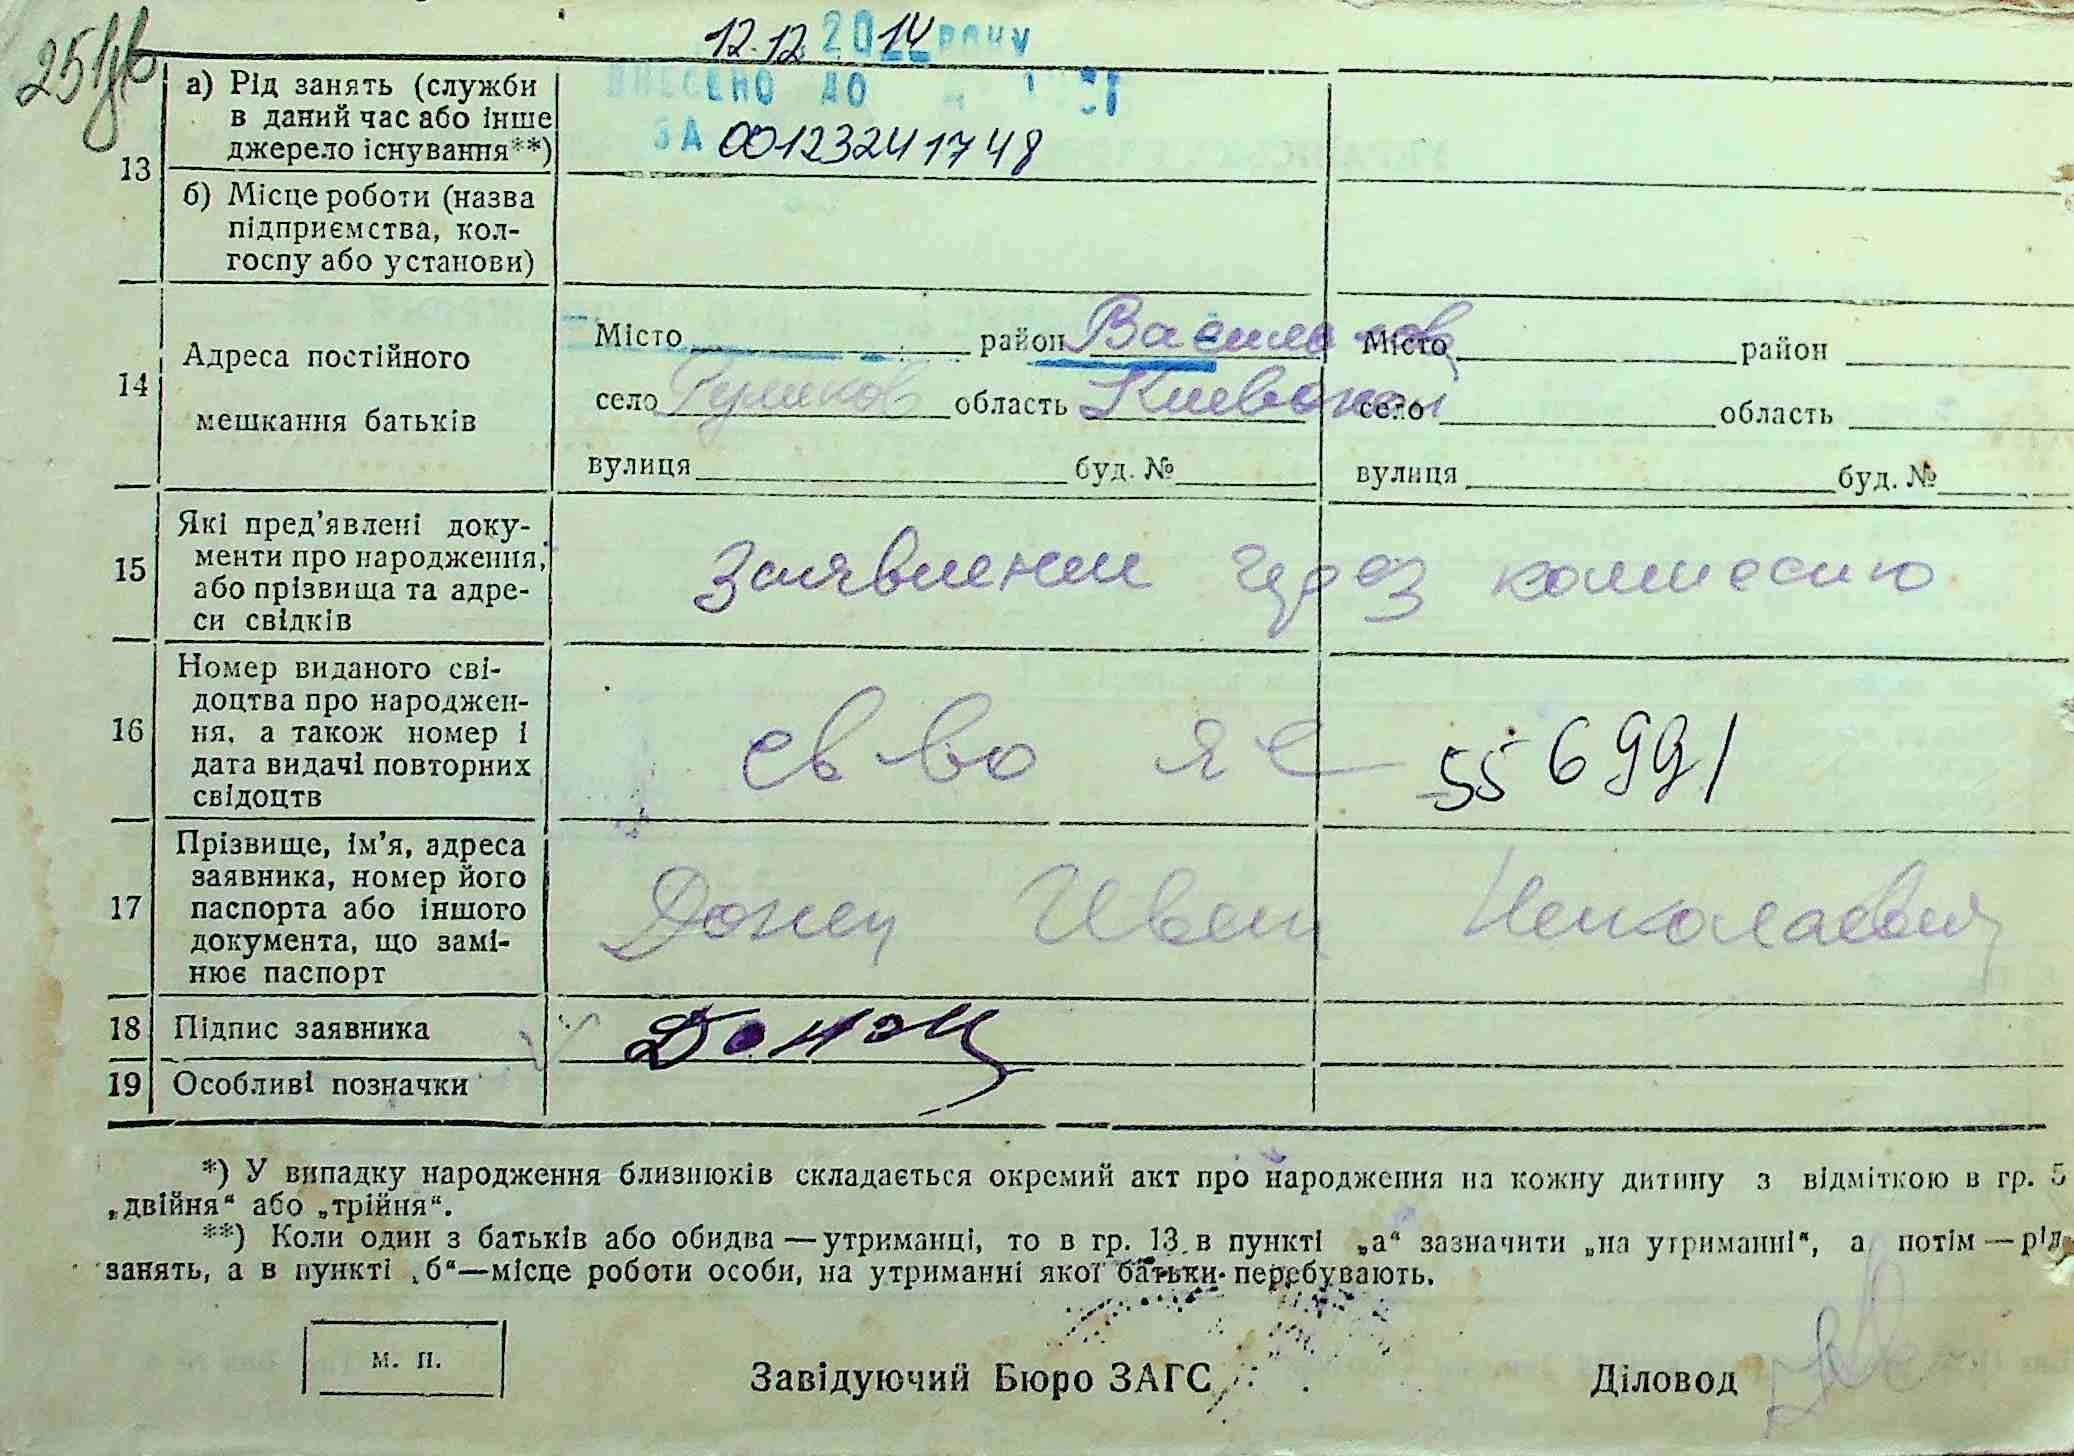 251зв
12.12 2014 року
ВНЕСЕНО ДО
ЗА 00123241748
13
а) Рід занять (служби
в даний час або інше
джерело існування**)
б) Місце роботи (назва
підприємства, кол-
госпу або установи)
14
Адреса постійного
мешкання батьків
Місто район Васильков Місто район
село Гуляков область Киевской село область
вулиця буд. № вулиця буд. №
15
Які пред’явлені доку-
менти про народження,
або прізвища та адре-
си свідків
Заявлении через комиссию
16
Номер виданого сві-
доцтва про народжен-
ня, а також номер і
дата видачі повторних
свідоцтв
св во яс 556991
17
Прізвище, ім’я, адреса
заявника, номер його
паспорта або іншого
документа, що замі-
нює паспорт
Донец Иван Николаевич
18 Підпис заявника Донец
19 Особливі позначки
*) У випадку народження близнюків складається окремий акт про народження на кожну дитину з відміткою в гр. 5
„двійня“ або „трійня“.
**) Коли один з батьків або обидва — утриманці, то в гр. 13 в пункті „а“ зазначити „на утриманні“, а потім — рід
занять, а в пункті „б“ — місце роботи особи, на утриманні якої батьки перебувають.
м. п.
Завідуючий Бюро ЗАГС Діловод